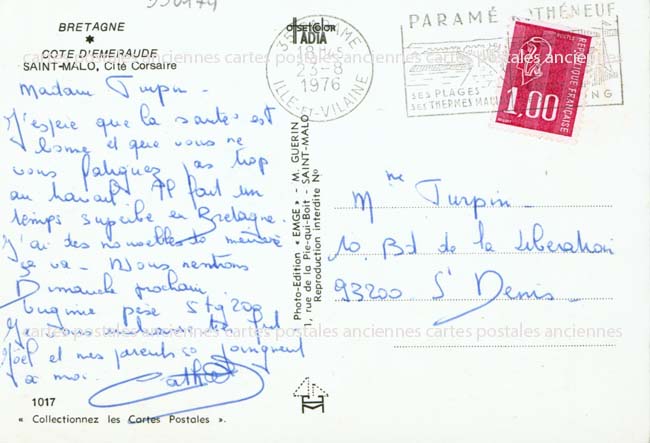 BRETAGNE
*
COTE D'EMERAUDE
SAINT-MALO, Cité Corsaire
Madame Turpin -
J'espère que la santé est
bonne et que vous ne
vous fatiguez pas trop
au travail. Il fait un
temps superbe en Bretagne.
J'ai des nouvelles
ça va - Nous rentrons
Dimanche prochain.
pèse 5kg200
Je vous
Joël et mes parents se joignent
à moi.
1017
« Collectionnez les Cartes Postales ».
OFFSETCOLOR
ADIA
35 PARAMÉ
18H
23-8
1976
ILLE-ET-VILAINE
PARAMÉ ROTHÉNEUF
SES PLAGES
SES THERMES MARINS
1.00
REPUBLIQUE FRANÇAISE
POSTES
Photo-Edition « EMGE » - M. GUERIN
1, rue de la Pie-qui-Boit - SAINT-MALO
Reproduction interdite No
Mme Turpin -
10. Bd de la Libération
93200 St Denis -
cartes postales anciennes cartes postales anciennes cartes postales anciennes